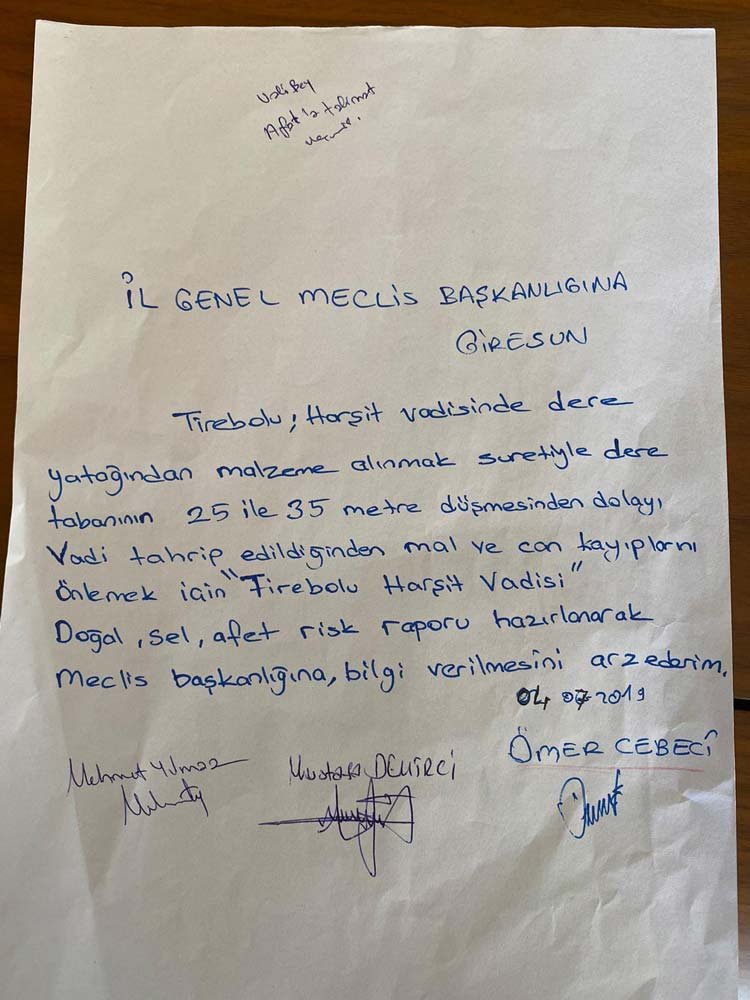 Vali Bey
Afat'a talimat
İL GENEL MECLİS BAŞKANLIGINA
GİRESUN
Tirebolu; Harşit vadisinde dere
yatağından malzeme alınmak suretiyle dere
tabanının 25 ile 35 metre düşmesinden dolayı
Vadi tahrip edildiğinden mal ve can kayıplarını
Önlemek için "Tirebolu Harşit Vadisi"
Doğal, sel, afet risk raporu hazırlanarak
Meclis başkanlığına, bilgi verilmesini arzederim.
04 07 2019
Mehmet Yılmaz Mustafa DEMİRCİ ÖMER CEBECİ